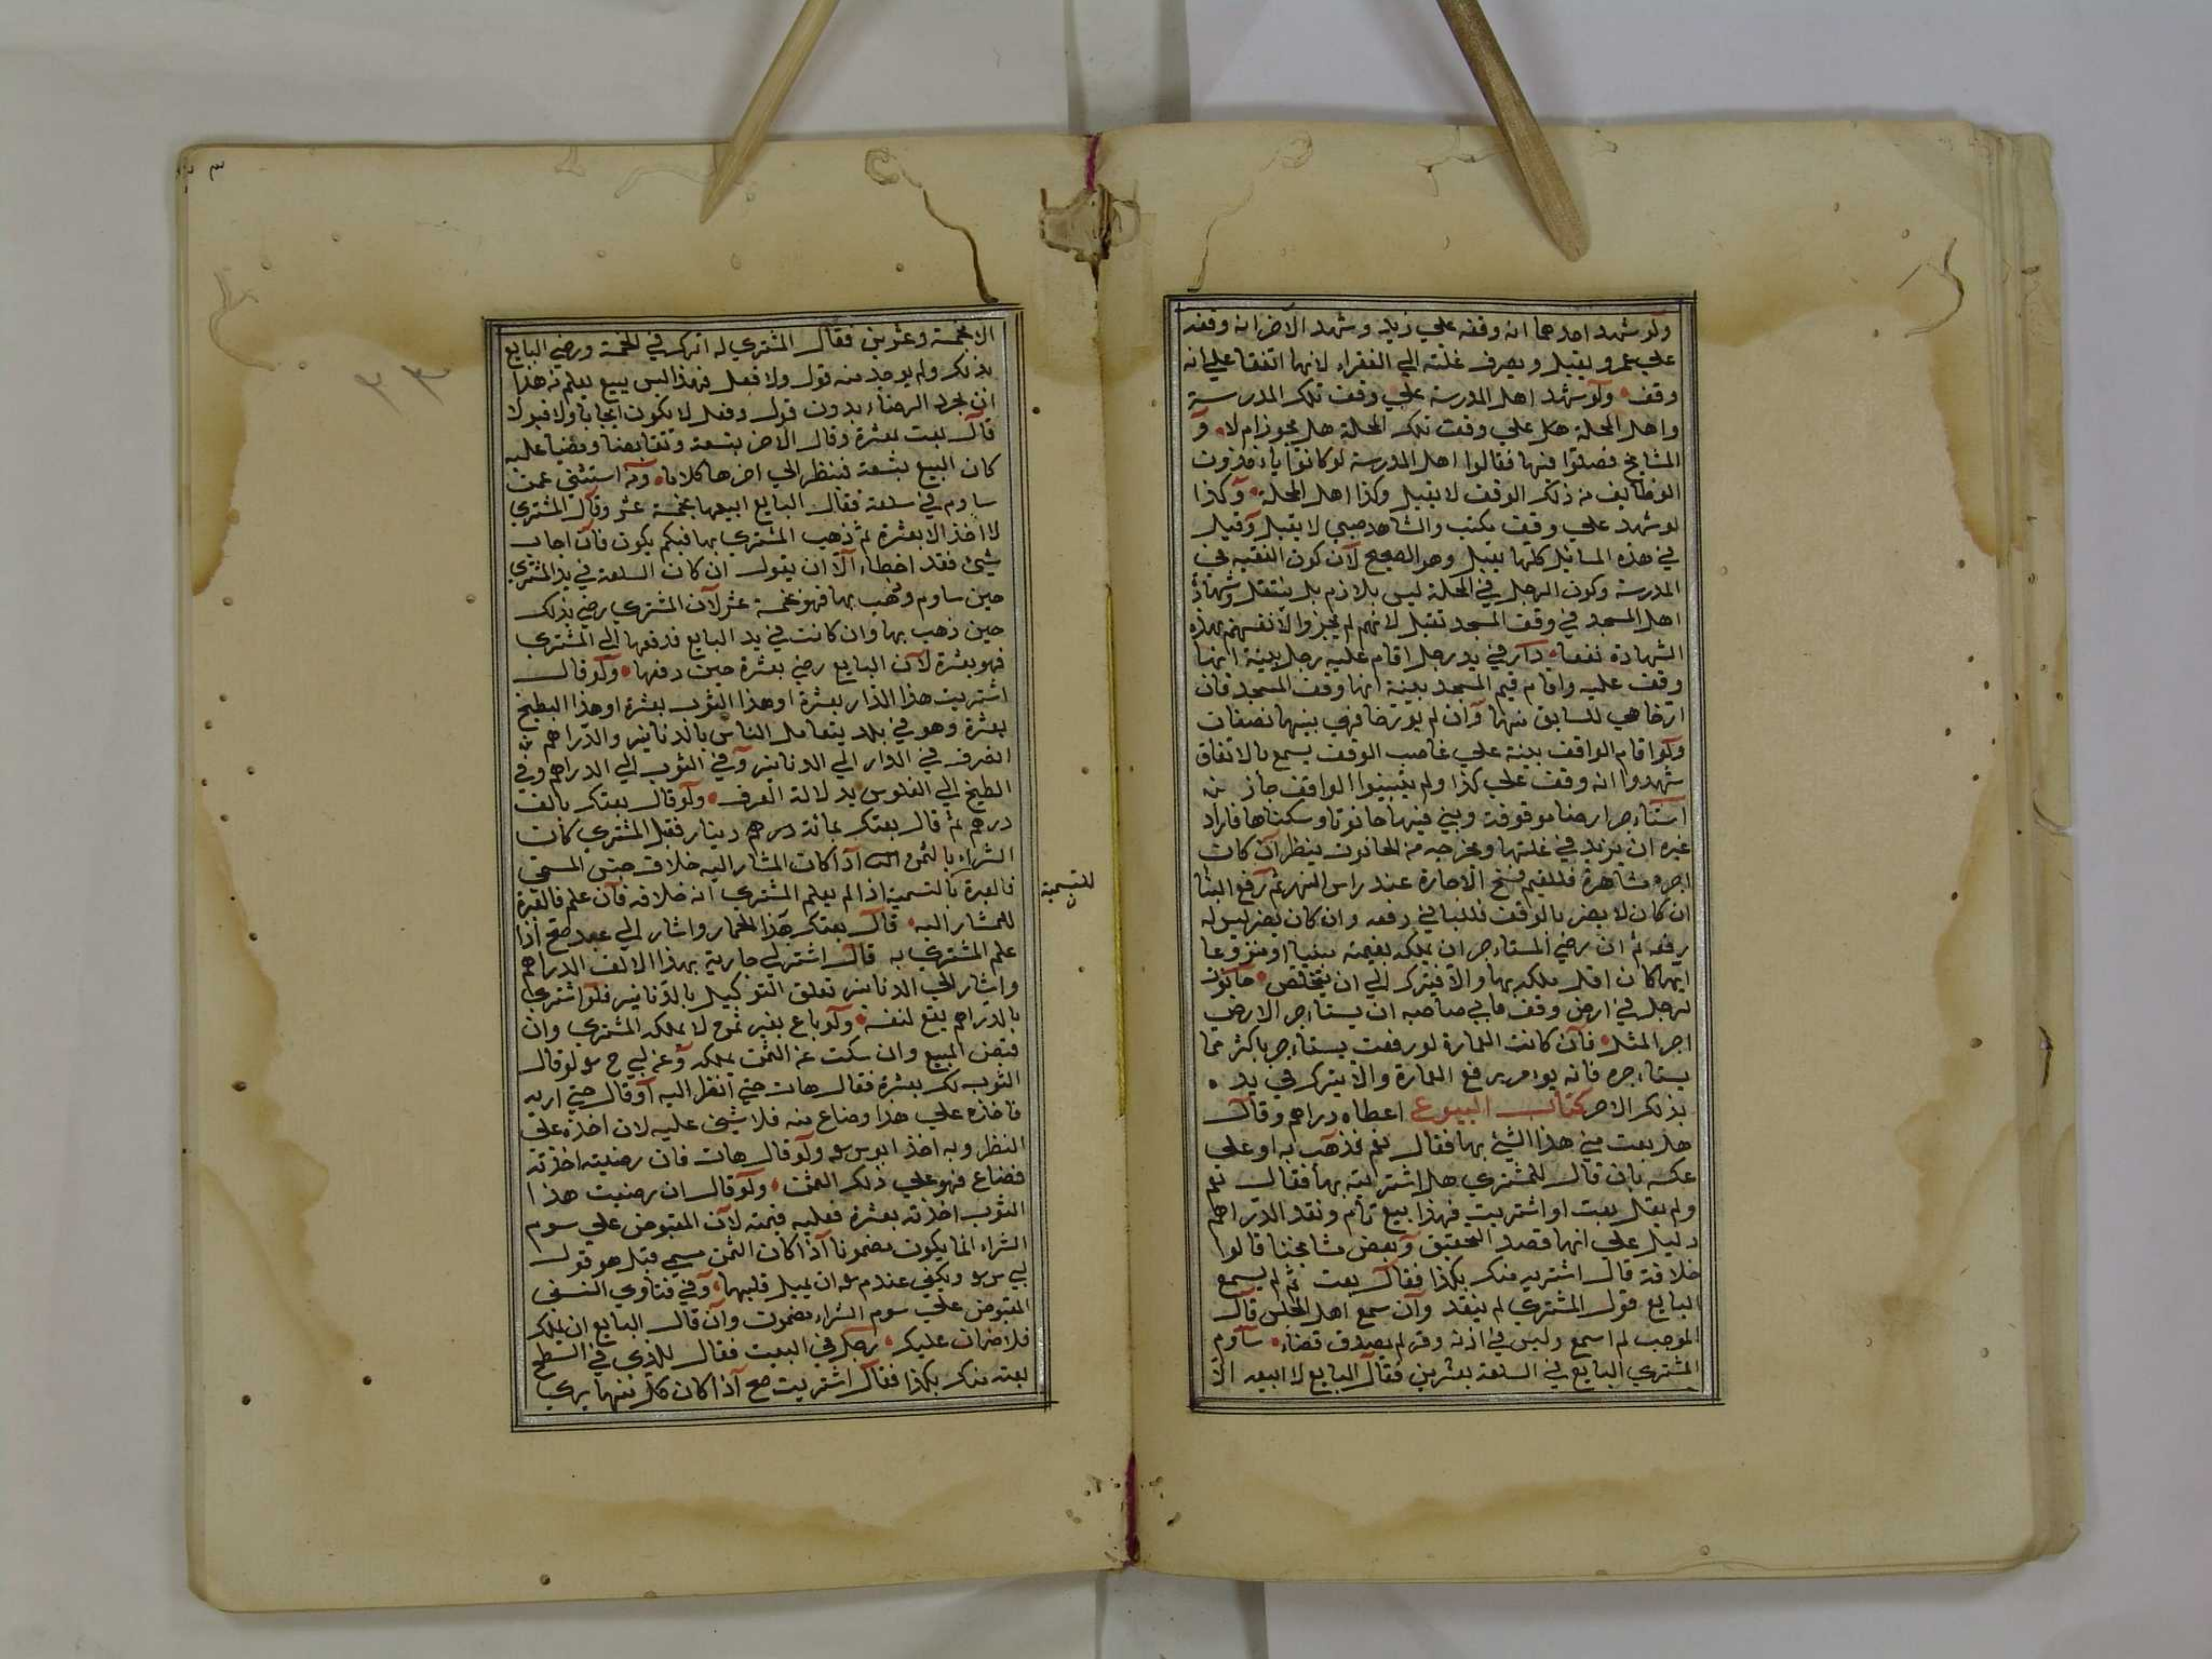 ولو شهد احدهما انه وقفه علي زيد وشهد الاخر انه وقفه
علي عمرو يقبل ويصرف غلته الي الفقراء لانهما اتفقا علي انه
وقف ولو شهد اهل المدرسة علي وقف تلك المدرسة
واهل المحلة هل علي وقف تلك المحلة هل يجوز ام لا و
المشايخ فصلوا فيها فقالوا اهل المدرسة لو كانوا ياءخذون
الوظايف من ذلك الوقف لا يقبل وكذا اهل المحلة وكذا
لو شهد علي وقف مكتب والشاهد صبي لا يقبل وقيل
في هذه المسايل كلها يقبل وهو الصحيح لان كون الفقيه في
المدرسة وكون الرجل في المحلة ليس بلازم بل ينتقل وشهادة
اهل المسجد في وقف المسجد تقبل لانهم لم يجروا لانفسهم بهذه
الشهادة نفعا دار في يد رجل اقام عليه رجل بينة انها
وقف عليه واقام قيم المسجد بينة انها وقف المسجد فان
ارخا هي للسابق منهما وان لم يورخا فهي بينهما نصفان
ولو اقام الواقف بينة علي غاصب الوقف يسمع بالاتفاق
شهدوا انه وقف علي كذا ولم يبينوا الواقف جاز من
استاءجر ارضا موقوفة وبني فيها حانوتا وسكنها فاراد
غيره ان يزيد في غلتها ويخرجه من الحانوت ينظر ان كان
اجره مشاهرة فللقيم فسخ الاجارة عند راس الشهر ثم رفع البنا
ان كان لا يضر بالوقف فللباني رفعه وان كان يضر ليس له
رفعه ثم ان رضي المستاءجر ان يملكه بقيمته مبنيا او منزوعا
ايهما كان اقل ملكه بها والا فيترك الي ان يتخلص حانوت
لرجل في ارض وقف فابي صاحبه ان يستاءجر الارض
اجر المثل فان كانت العمارة لو رفعت يستاءجر باكثر مما
يستاءجره فانه يوامر برفع العمارة والا يترك في يده
بذلك الاجر كتاب البيوع اعطاه دراهم وقال
هل بعت مني هذا الشئ بها فقال نعم فذهب به او علي
عكسه بان قال للمشتري هل اشتريته بها فقال نعم
ولم يقل بعت او اشتريت فهذا بيع تام ونقد الدراهم
دليل علي انهما قصد التحقيق وبعض مشايخنا قالوا
خلافه قال اشتريه منك بكذا فقال بعت ثم لم يسمع
البايع قول المشتري لم ينعقد وان سمع اهل المجلس قال
الموجب لم اسمع وليس في اذنه وقر لم يصدق قضاء ساوم
المشتري البايع في السلعة بعشرين فقال البايع لا ابيعه الا
الا بخمسة وعشرين فقال المشتري له اترك في الخمسة ورضي البايع
بذلك ولم يوجد منه قول ولا فعل فهذا ليس ببيع يعلم من هذا
ان مجرد الرضاء بدون قول وفعل لا يكون ايجابا ولا قبولا
قال بعت بعشرة وقال الاخر بتسعة وتقابضا ومضيا عليه
كان البيع بتسعة فينظر الي اخرهما كلاما ومن استفتي عمن
ساوم في سلعة فقال البايع ابيعها بخمسة عشر وقال المشتري
لا اخذ الا بعشرة ثم ذهب المشتري بها فبكم يكون فان اجاب
شيئ فقد اخطاء الا ان يقول ان كان السلعة في يد المشتري
حين ساوم وذهب بها فهو بخمسة عشر لان المشتري رضي بذلك
حين ذهب بها وان كانت في يد البايع فدفعها الي المشتري
فهو بعشرة لان البايع رضي بعشرة حين دفعها ولو قال
اشتريت هذا الدار بعشرة او هذا الثوب بعشرة او هذا البطيخ
بعشرة وهو في بلد يتعامل الناس بالدنانير والدراهم
انصرف في الدار الي الدنانير وفي الثوب الي الدراهم وفي
البطيخ الي الفلوس بدلالة العرف ولو قال بعتك بالف
درهم ثم قال بعتك بمائة درهم دينار فقبل المشتري كان
الشراء بالثمن اذا كان المشار اليه خلاف جنس المسمي
فالعبرة بالتسمية اذا لم يعلم المشتري انه خلافه فان علم فالعبرة
للمشار اليه قال بعتك هذا الحمار واشار الي عبد صح اذا
علم المشتري به قال اشتر لي جارية بهذا الالف الدراهم
واشار الي الدنانير تعلق التوكيل بالدنانير فلو اشتري
بالدراهم يقع لنفسه ولو باع بغير ثمن لا يملكه المشتري وان
قبض المبيع وان سكت عن الثمن يملكه وعن لبي ح سو لو قال
الثوب لك بعشرة فقال هات حتي انظر اليه او قال حتي اريه
فاخذه علي هذا وضاع منه فلا شيئ عليه لان اخذه علي
النظر وبه اخذ ابو س سو ولو قال هات فان رضيته اخذته
فضاع فهو علي ذلك الثمن ولو قال ان رضيت هذا
الثوب اخذته بعشرة فعليه قيمته لان المقبوض علي سوم
الشراء انما يكون مضمونا اذا كان الثمن مسمي قبل هو قول
لبي س سو ويكفي عند م سو ان يميل قلبهما وفي فتاوي النسفي
المقبوض علي سوم الشراء مضمون وان قال البايع ان هلك
فلا ضمان عليك رجل في البيت فقال للذي في السطح
بعته منك بكذا فقال اشتريت صح اذا كان كل منهما يري
للتسمية
٢٣